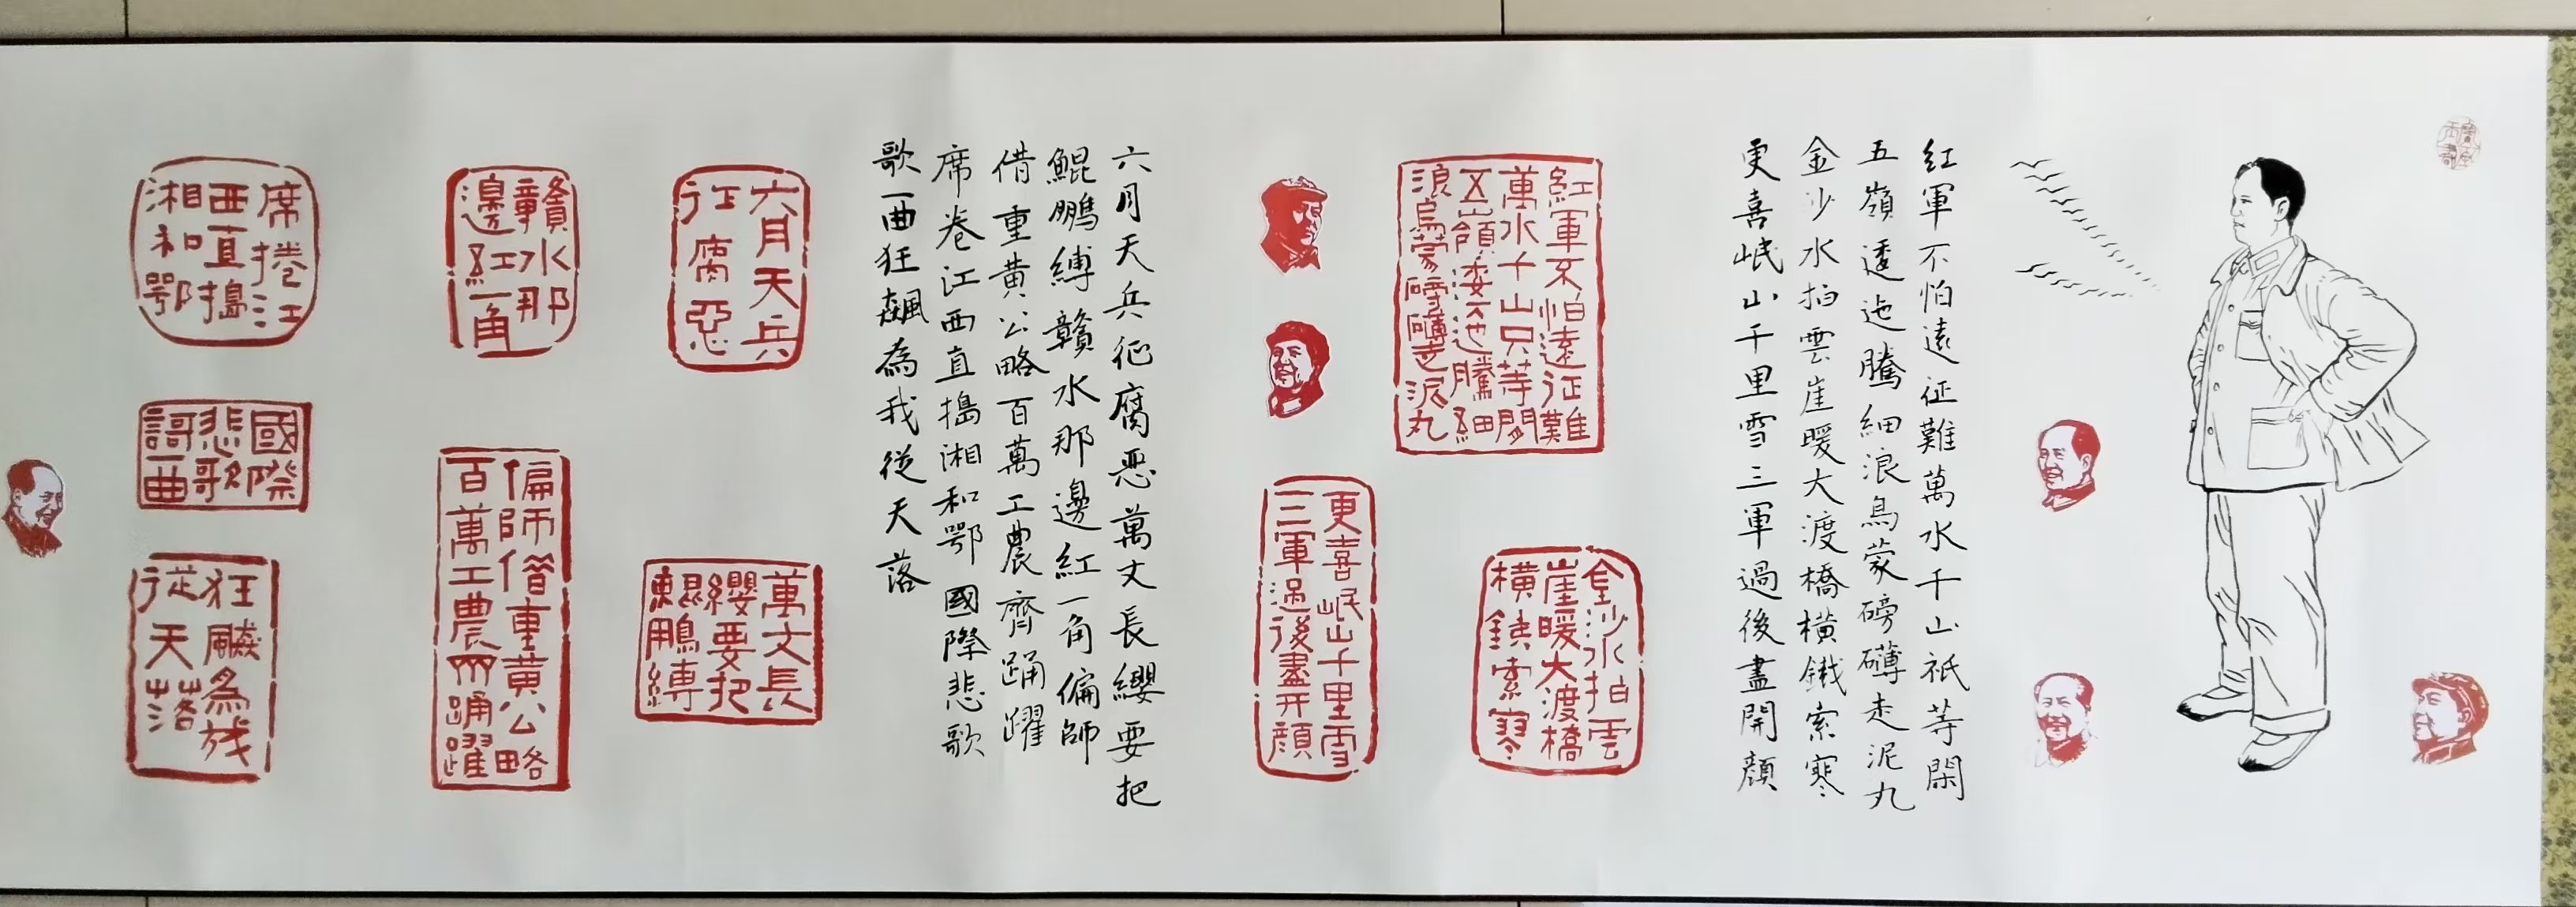 紅軍不怕遠征難萬水千山祇等閑
五嶺逶迤騰細浪烏蒙磅礴走泥丸
金沙水拍雲崖暖大渡橋橫鐵索寒
更喜岷山千里雪三軍過後盡開顔
紅軍不怕遠征難
萬水千山只等閑
五嶺逶迤騰細
浪烏蒙磅礴走泥丸
金沙水拍雲
崖暖大渡橋
橫鐵索寒
更喜岷山千里雪
三軍過後盡开顔
六月天兵征腐惡萬丈長纓要把
鯤鵬縛贛水那邊紅一角偏師
借重黄公略百萬工農齊踊躍
席卷江西直搗湘和鄂國際悲歌
歌一曲狂飆為我從天落
六月天兵
征腐惡
萬丈長
纓要把
鯤鵬縛
贛水那
邊紅一角
偏師借重黄公略
百萬工農齊踊躍
席捲江
西直搗
湘和鄂
國際
悲歌
謌一曲
狂飆為我
從天落